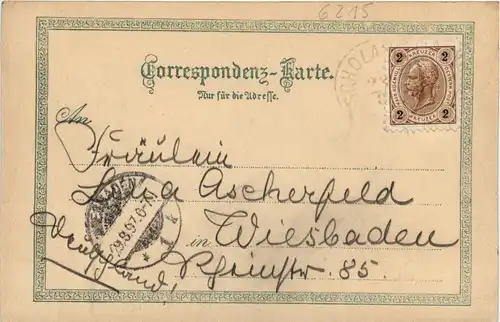 6215
Correspondenz-Karte.
Nur für die Adresse.
2 2
KREUZER
2 2
An
Fräulein
Ascherfeld
in Wiesbaden
Rheinstr. 85.
Deutschland,